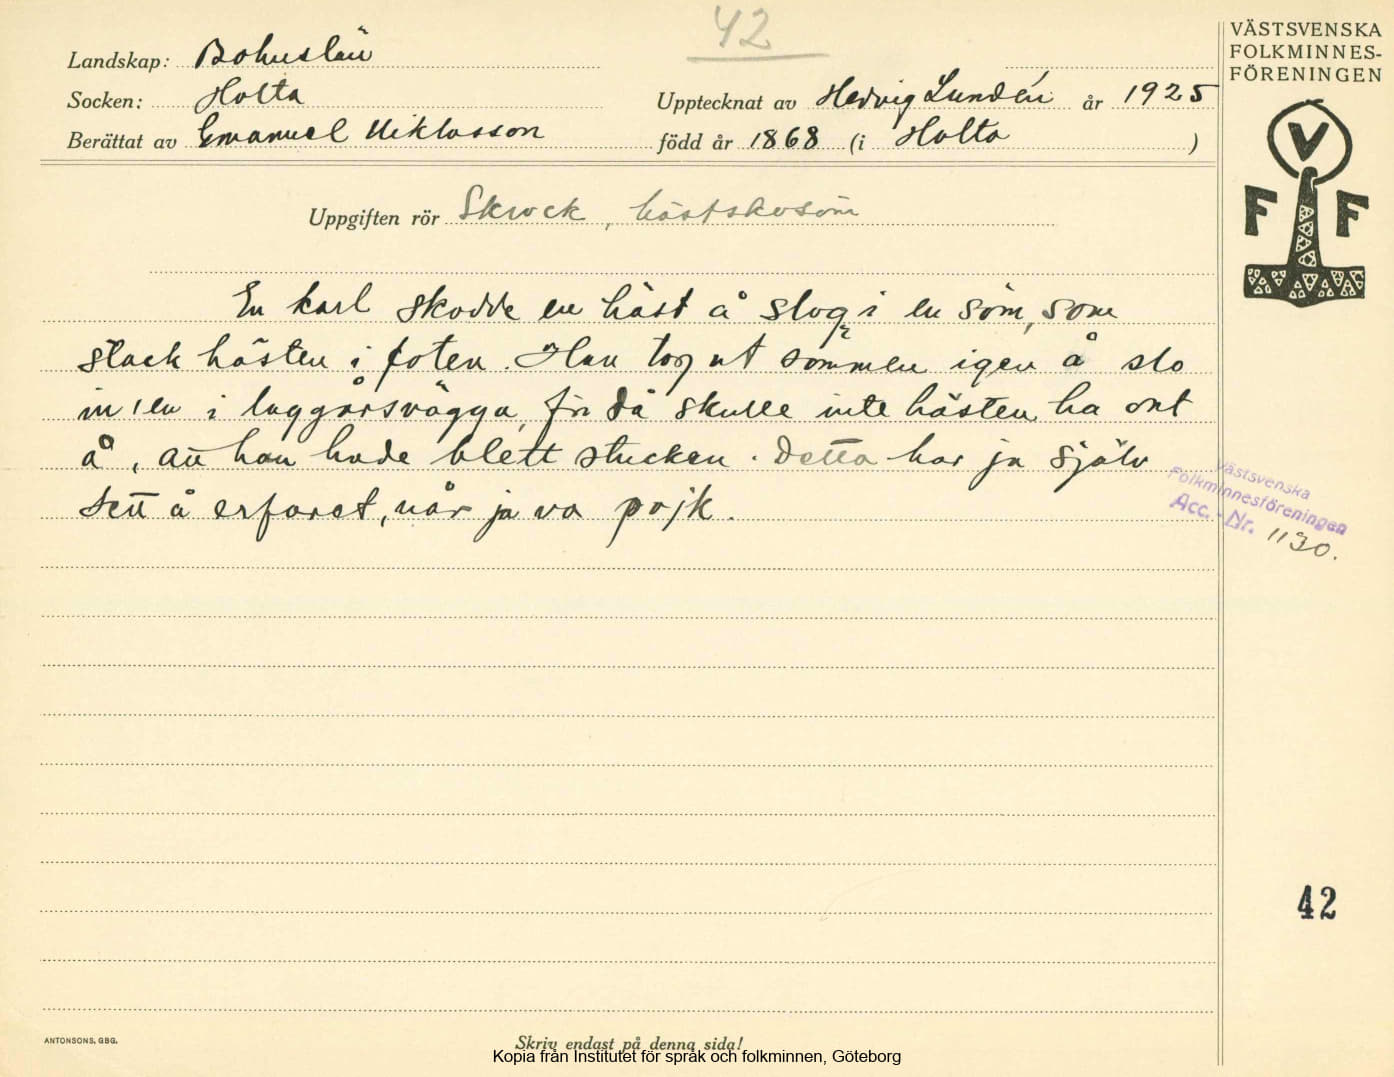 42
VÄSTSVENSKA
FOLKMINNES-
FÖRENINGEN
Landskap: Bohuslän
Socken: Holta
Upptecknat av Hedvig Lundén år 1925
Berättat av Emanuel Niklasson
född år 1868 (i Holta)
V
F F
Uppgiften rör Skrock, hästskosöm
En karl skodde en häst å slog i en söm, som
stack hästen i foten. Han tog ut sömmen igen å slo
in 'en i laggårsvägga, för då skulle inte hästen ha ont
å, att han hade blett stucken. Detta har ja själv
sett å erfaret, når ja va pojk.
Västsvenska
Folkminnesföreningen
Acc. - Nr. 1130.
42
ANTONSONS, GBG.
Skriv endast på denna sida!
Kopia från Institutet för språk och folkminnen, Göteborg